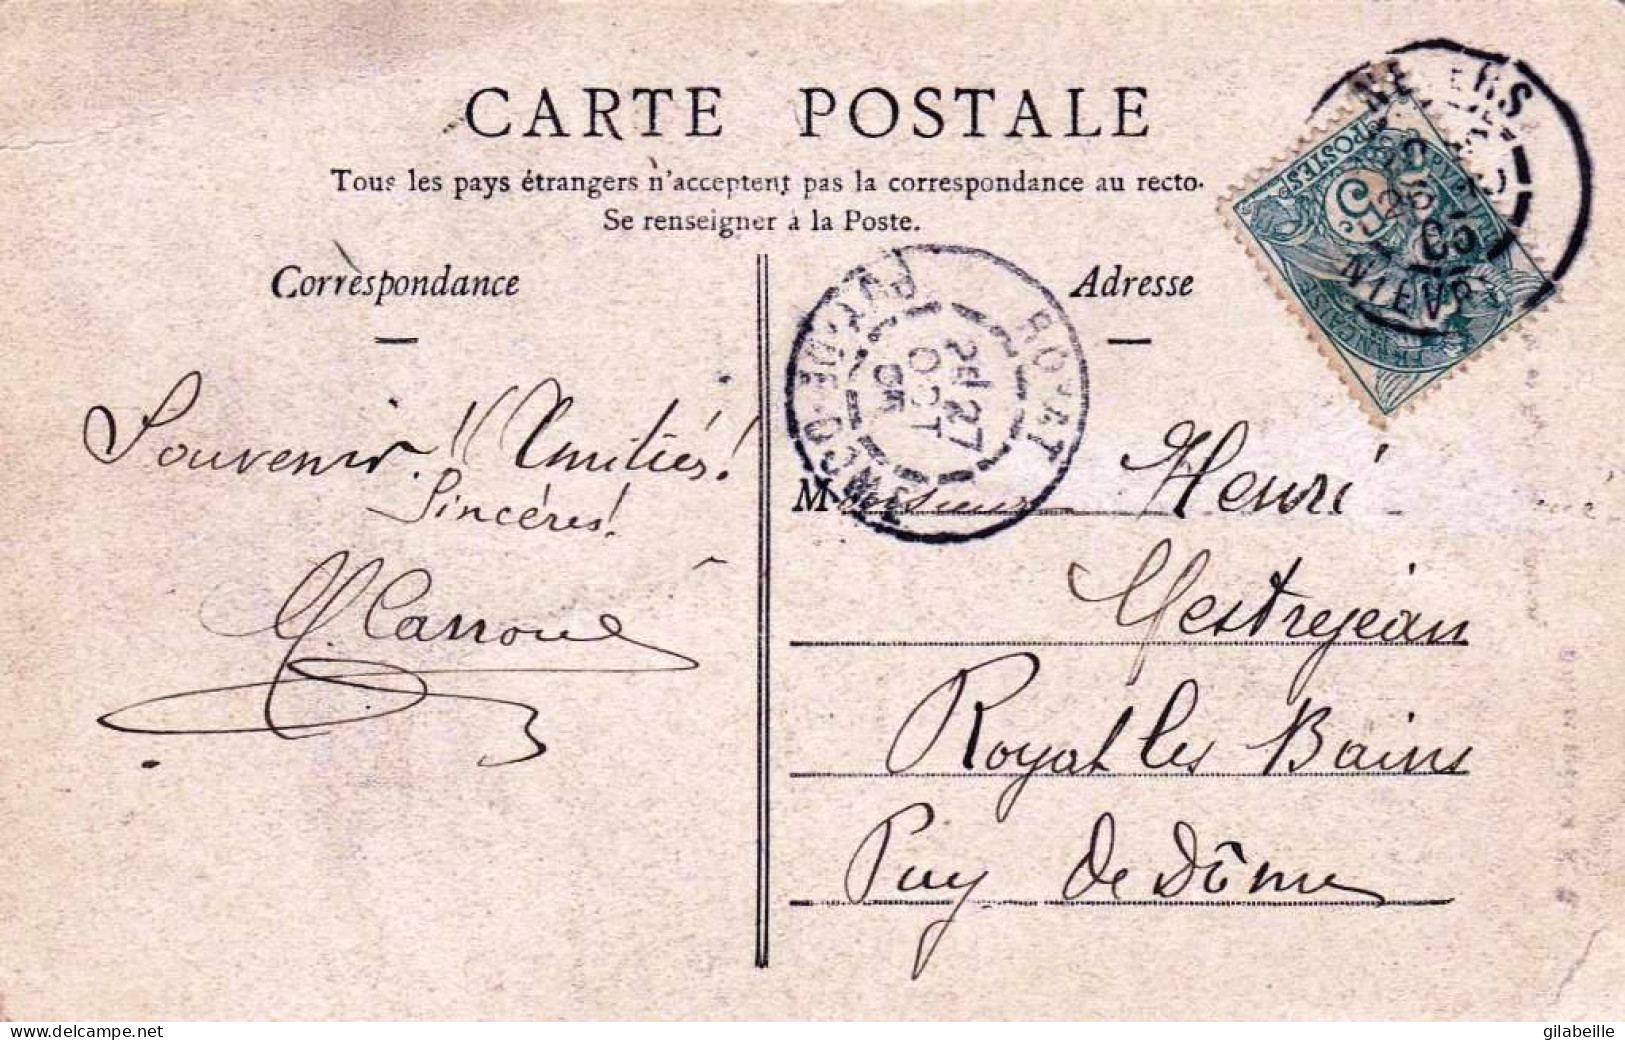 CARTE POSTALE
Tous les pays étrangers n'acceptent pas la correspondance au recto.
Se renseigner à la Poste.
Correspondance
Adresse
NEVERS
NIEVRE
5
POSTES
FRANÇAISE
ROYAT
PUY-DE-DOME
27
OCT
05
Souvenir! Amitiés!
Sincères!
Monsieur Henri
Mestrejean
Royat les Bains
Puy de Dôme
www.delcampe.net
gilabeille